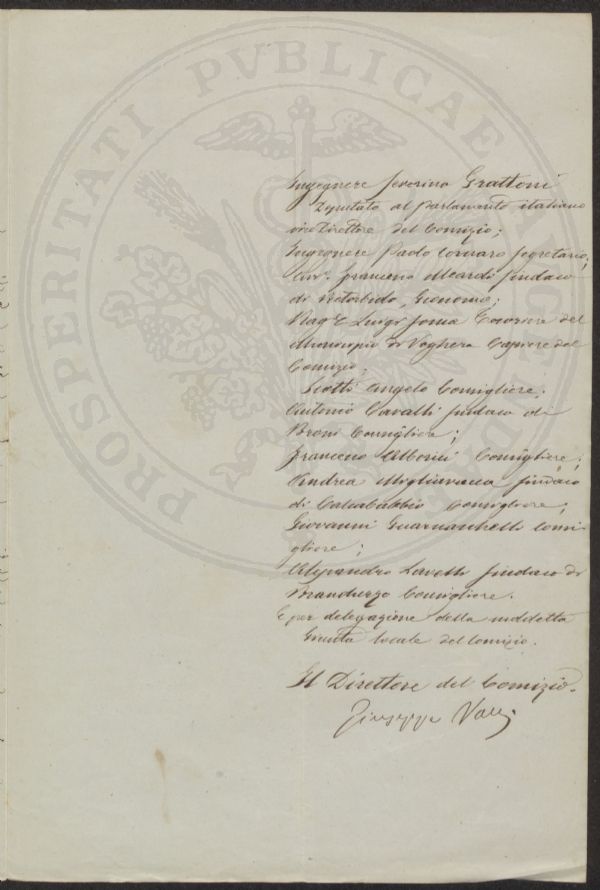 PROSPERITATI PVBLICAE
Ingegnere Severino Grattoni
Deputato al Parlamento italiano
vice Direttore del Comizio;
Ingegnere Paolo Segretario;
Cav.e Francesco Meardi Sindaco
di Retorbido, Economo;
Rag.e Luigi del
Municipio di Voghera del
Comizio;
Scotti Angelo Consigliere;
Antonio Cavalli Sindaco di
Broni Consigliere;
Francesco Consigliere;
Andrea Migliavacca Sindaco
di Calcababbio Consigliere;
Giovanni Consi-
gliere;
Alessandro Lavelli Sindaco di
Branduzzo Consigliere.
E per delegazione della suddetta
Giunta locale del Comizio.
Il Direttore del Comizio.
Giuseppe